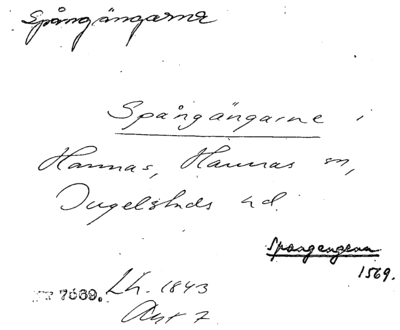 Spångängarne
Spångängarne i
Hannas, Hannas sn,
Ingelstads hd.
Spångengena
1569.
7669. Lh. 1843
Akt 7